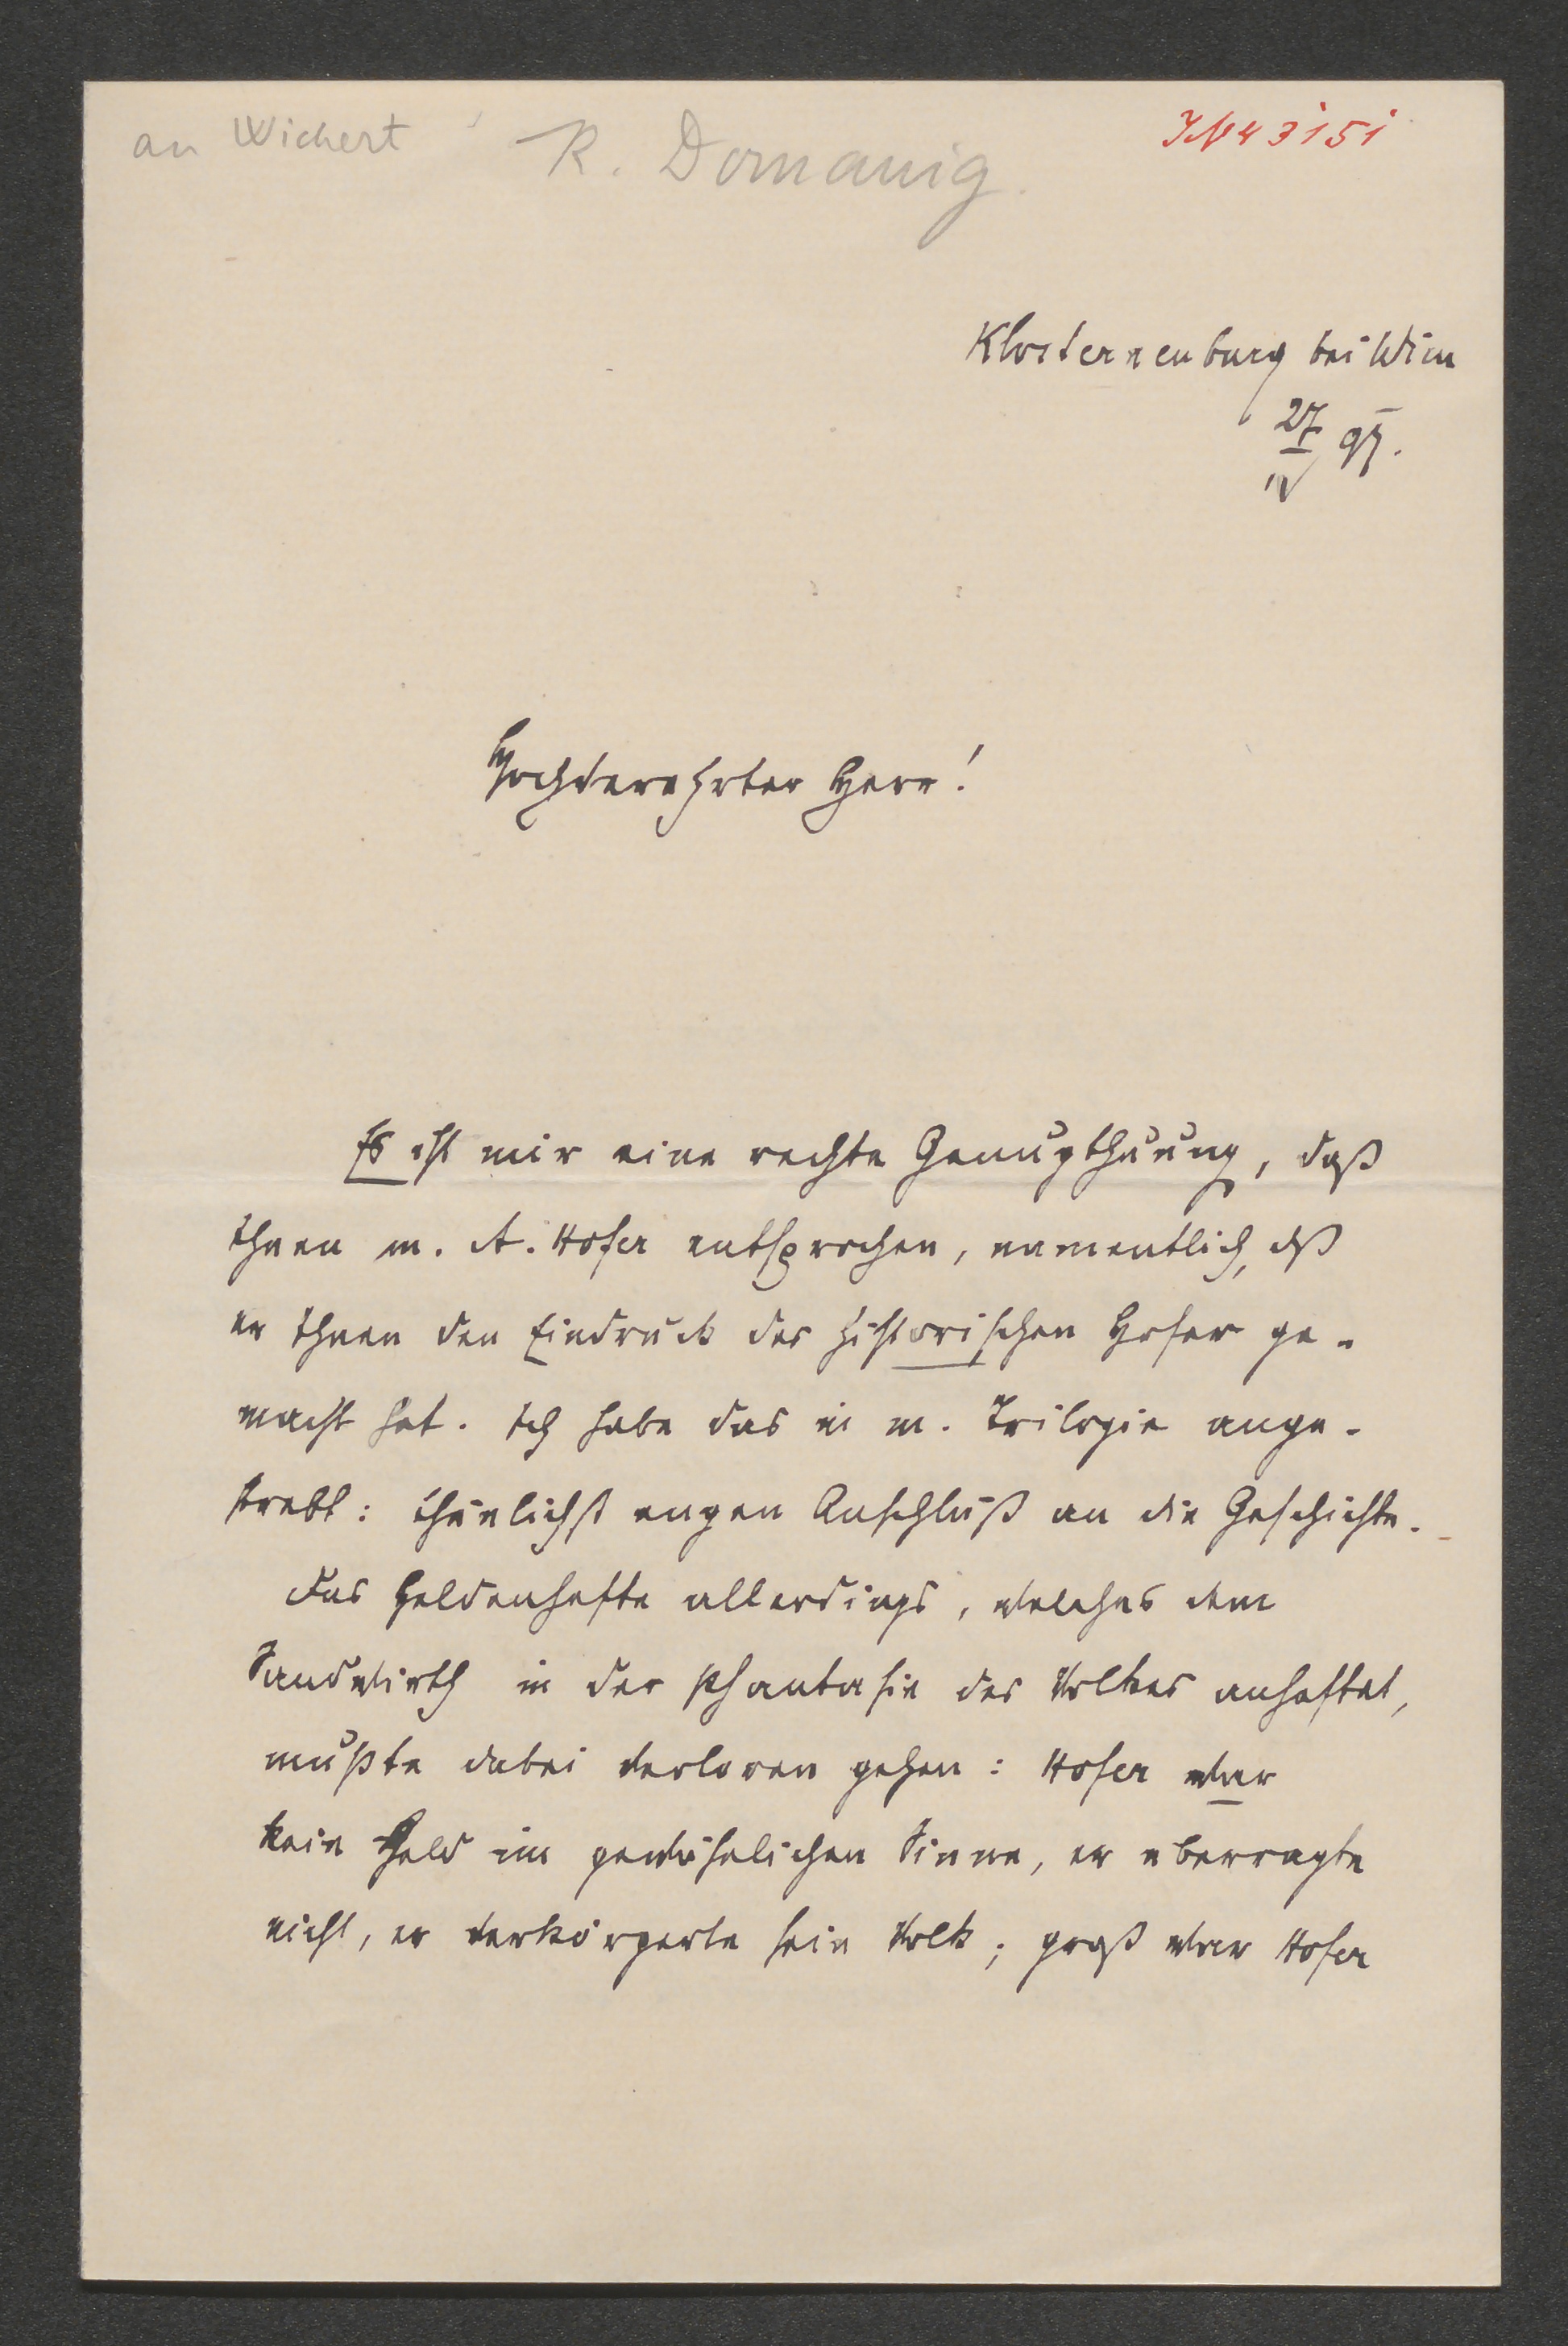 an Wichert
K. Domanig.
IN 43151
Klosterneuburg bei Wien
27/IV 97.
Hochverehrter Herr!
Es ist mir eine rechte Genugthuung, daß
Ihnen m. A. Hofer entsprochen, namentlich, dß
er Ihnen den Eindruck des historischen Hofer ge-
macht hat. Ich habe das in m. Trilogie ange-
strebt: thunlichst engen Anschluß an die Geschichte.
Das Heldenhafte allerdings, welches dem
Sandwirth in der Phantasie des Volkes anhaftet,
mußte dabei verloren gehen: Hofer war
kein Held im gewöhnlichen Sinne, er überragte
nicht, er verkörperte sein Volk; groß war Hofer